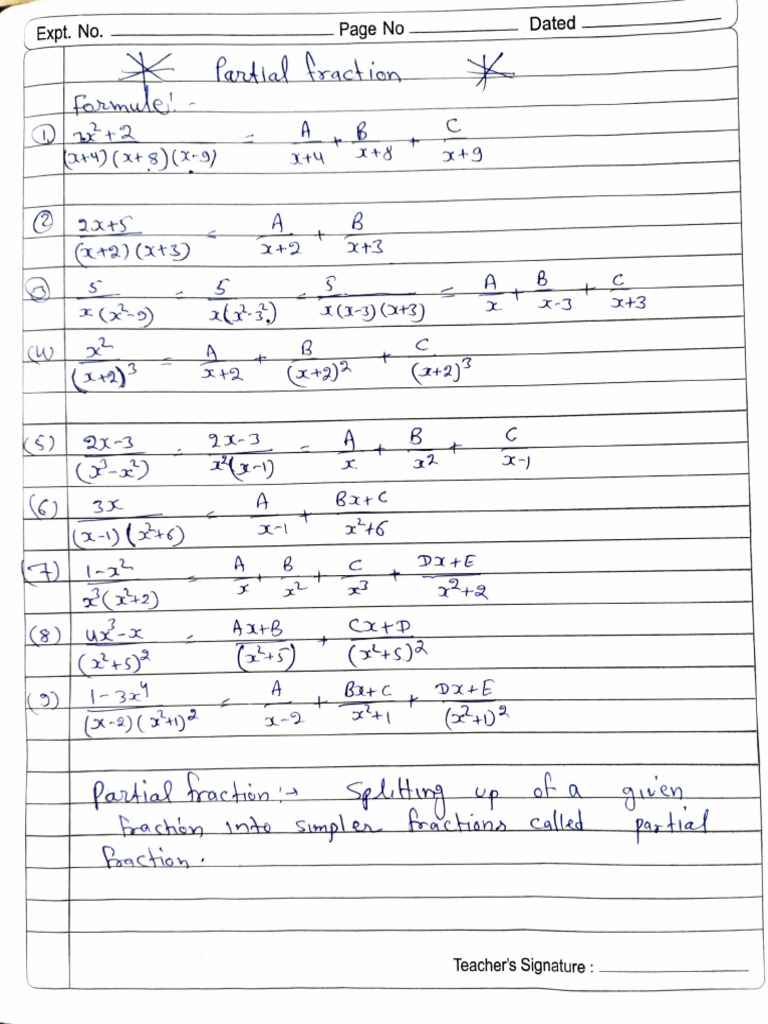 Expt. No. Page No Dated
Partial fraction
Formule:-
(1) x²+2/(x+4)(x+8)(x-9) = A/x+4 + B/x+8 + C/x+9
(2) 2x+5/(x+2)(x+3) = A/x+2 + B/x+3
(3) 5/x(x²-9) = 5/x(x²-3²) = 5/x(x-3)(x+3) = A/x + B/x-3 + C/x+3
(4) x²/(x+2)³ = A/x+2 + B/(x+2)² + C/(x+2)³
(5) 2x-3/(x³-x²) = 2x-3/x²(x-1) = A/x + B/x² + C/x-1
(6) 3x/(x-1)(x²+6) = A/x-1 + Bx+C/x²+6
(7) 1-x²/x³(x²+2) = A/x + B/x² + C/x³ + Dx+E/x²+2
(8) 4x³-x/(x²+5)² = Ax+B/(x²+5) + Cx+D/(x²+5)²
(9) 1-3x⁴/(x-2)(x²+1)² = A/x-2 + Bx+C/x²+1 + Dx+E/(x²+1)²
Partial fraction:→ Splitting up of a given
fraction into simpler fractions called partial
fraction.
Teacher's Signature :